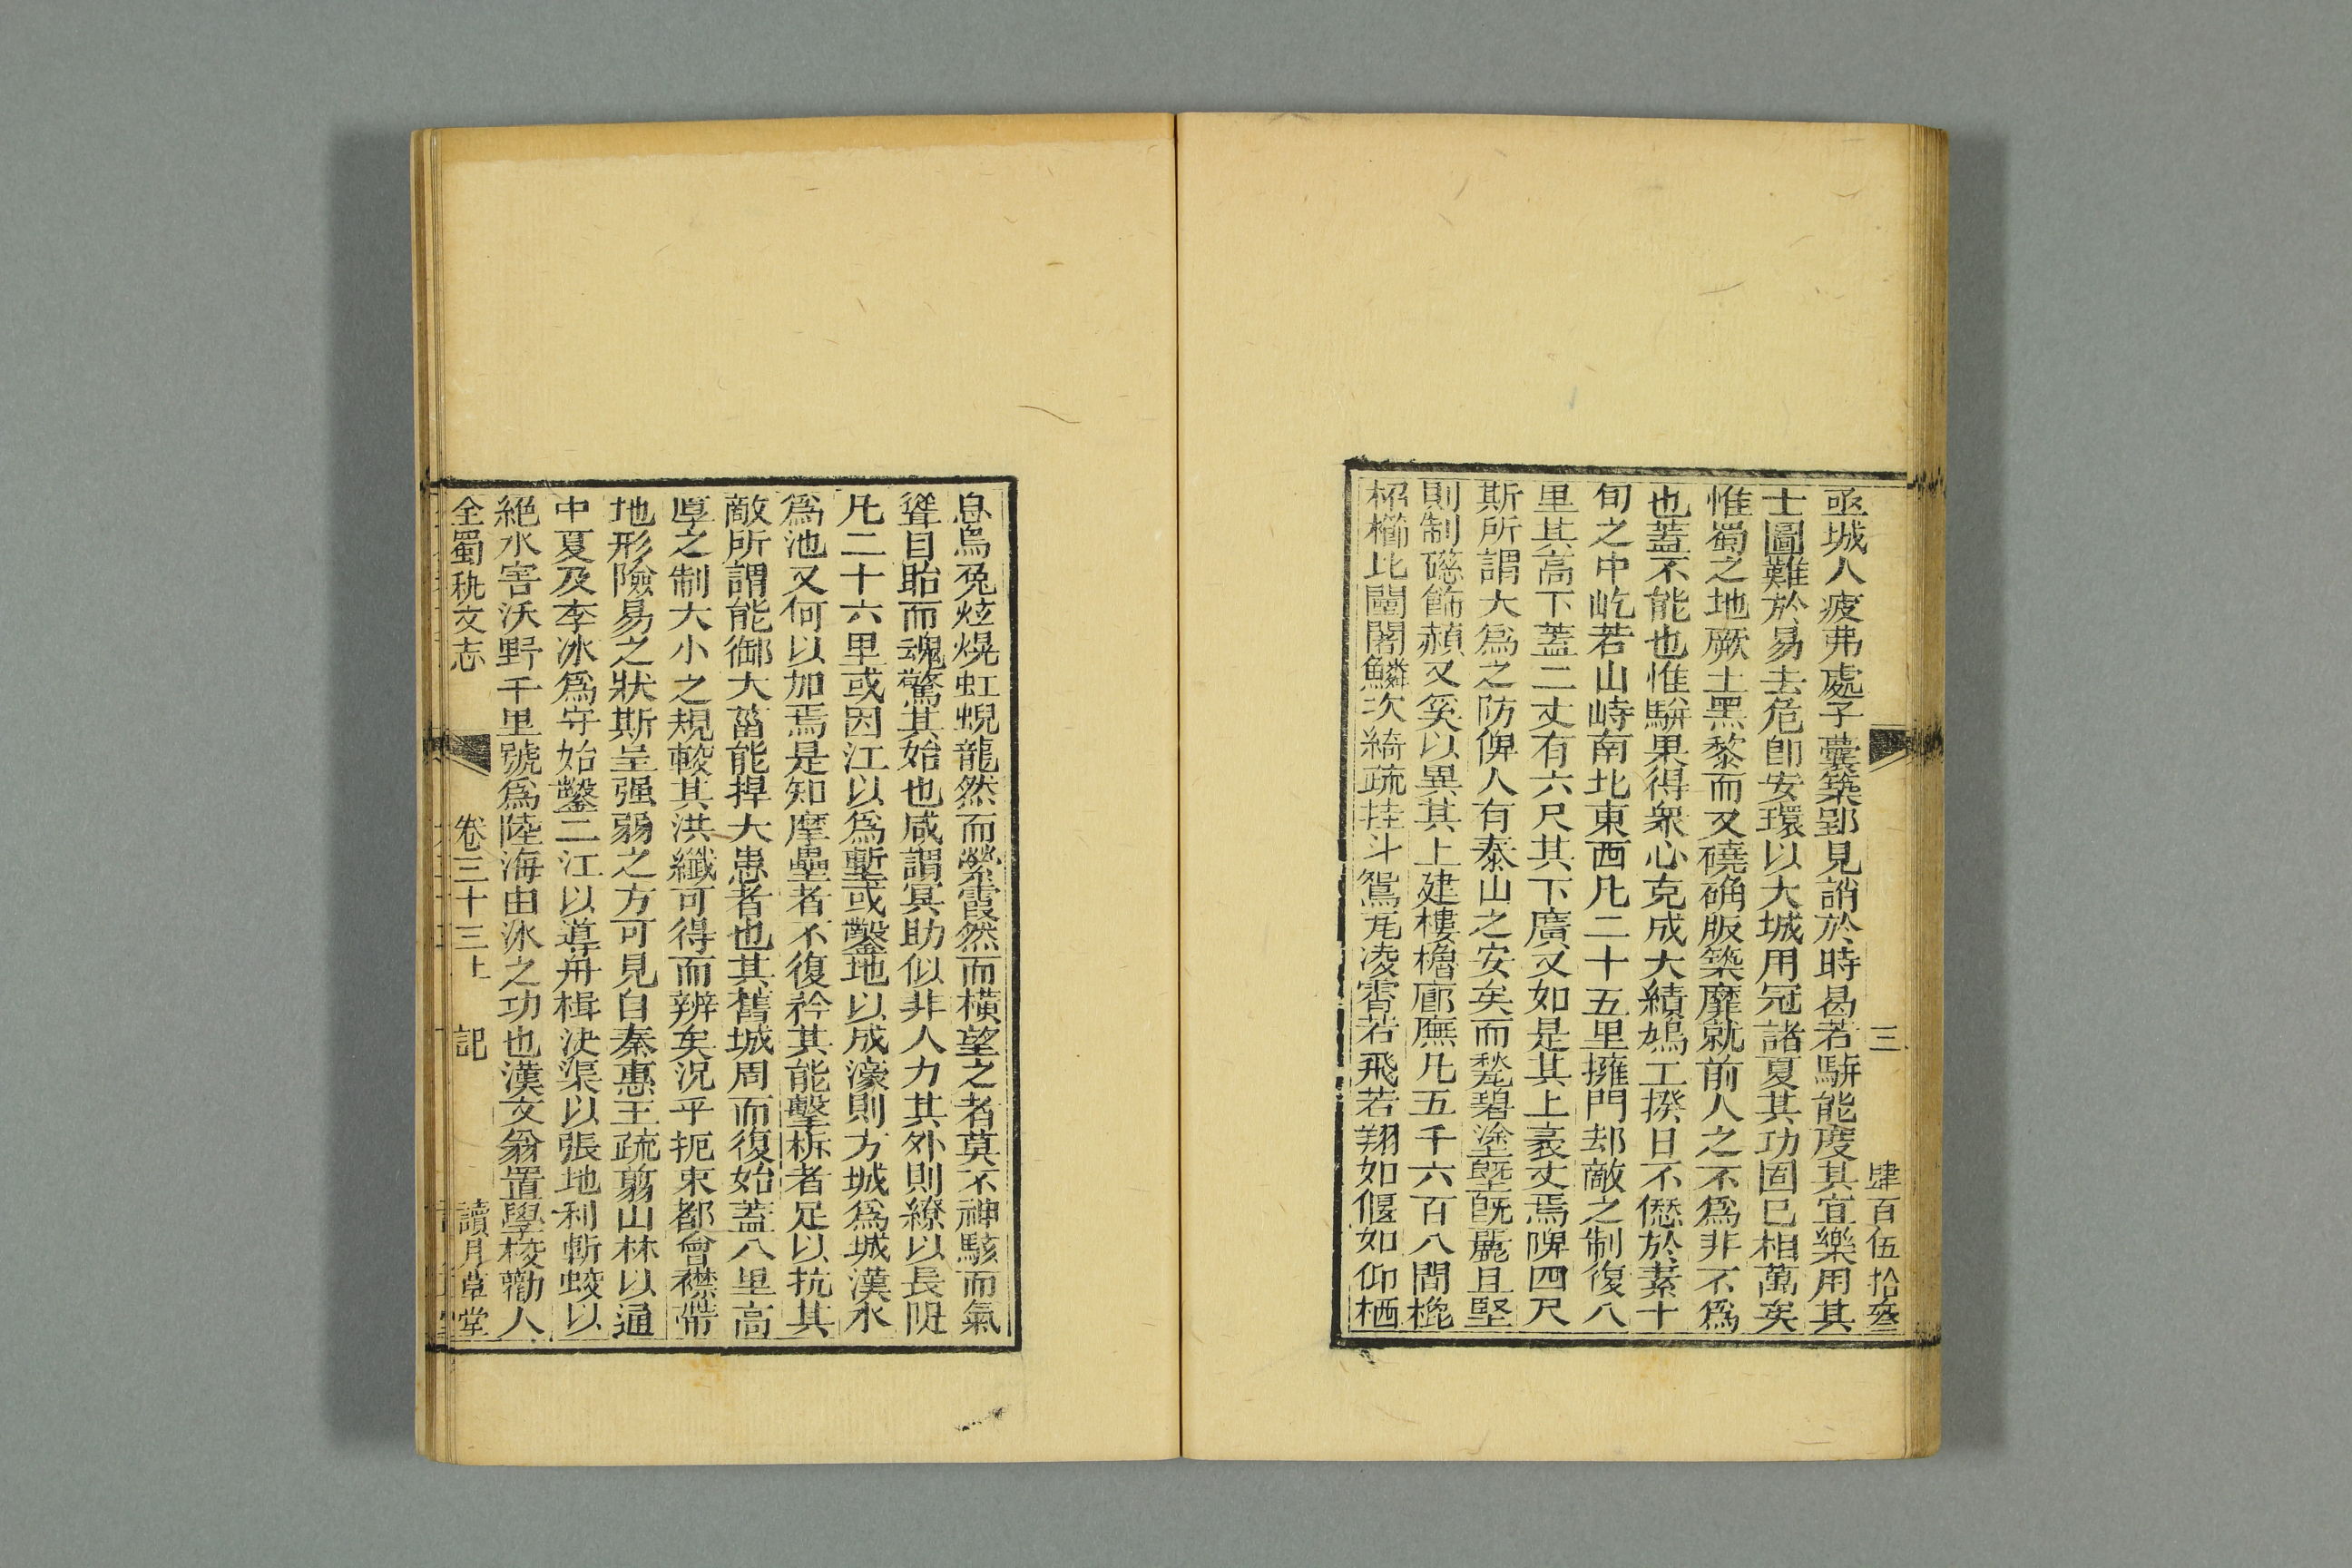 三 肆百伍拾叄
亟城人疲弗處子囊築郢見誚於時曷若駢能度其宜樂用其
士圖難於易去危卽安環以大城用冠諸夏其功固已相萬矣
惟蜀之地厥土黑黎而又磽确版築靡就前人之不爲非不爲
也蓋不能也惟駢果得衆心克成大績鳩工揆日不愆於素十
旬之中屹若山峙南北東西凡二十五里擁門却敵之制復八
里其高下蓋二丈有六尺其下廣又如是其上袤丈焉陴四尺
斯所謂大爲之防俾人有泰山之安矣而甃碧塗塈旣麗且堅
則制磁飾赬又奚以異其上建樓櫓廊廡凡五千六百八間㮰
柖櫛比闉闍鱗次綺疏挂斗鴛瓦凌霄若飛若翔如偃如仰栖
息烏兔炫熀虹蜺龍然而縈霞然而橫望之者莫不神駭而氣
聳目眙而魂驚其始也咸謂冥助似非人力其外則繚以長隄
凡二十六里或因江以爲塹或鑿地以成濠則方城爲城漢水
爲池又何以加焉是知摩壘者不復衿其能擊柝者足以抗其
敵所謂能御大菑能捍大患者也其舊城周而復始蓋八里高
厚之制大小之規較其洪纖可得而辨矣況乎扼束都會襟帶
地形險易之狀斯呈强弱之方可見自秦惠王疏翦山林以通
中夏及李冰爲守始鑿二江以導舟楫決渠以張地利斬蛟以
絕水害沃野千里號爲陸海由冰之功也漢文翁置學校勸人
全蜀秇文志 卷三十三上 記 讀月草堂